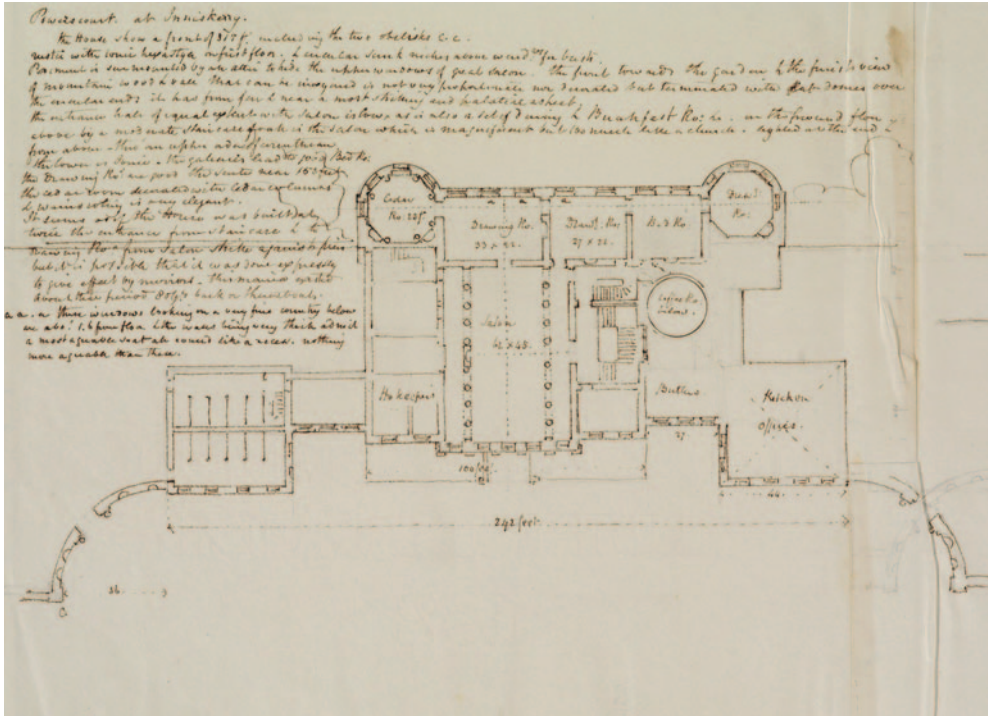 Powerscourt. at Inniskerry.
the House show a front of feet, including the two obelisks c.c.
rustic with ionic hexastyle on first floor. & circular sunk niches above wind.ws for busts.
Pediment is surmounted by an attic to hide the upper windows of great Salon. the front towards the garden & the finest view
of mountain wood & vale that can be imagined is not very proportionate nor decorated but terminated with flat domes over
the circular ends it has from far & near a most striking and palatial aspect,
the entrance hall of equal extent with Salon is low, as is also a set of dining & Breakfast Ro: on the ground floor
above by a moderate staircase is the Salon which is magnificent but too much like a church. lighted at the end &
from above - this an upper order of
the lower is Ionic - the galeries lead to good Bed Ro:
the Drawing Ro.s are good the suite near 150 feet
the cedar room decorated with Cedar columns
& wainscoting is very elegant.
It seems as if the House was built
twice the entrance from staircase & to
Drawing Ro: from Salon strike against a pier
but it is possible that it was done expressly
to give effect by mirrors. this manier existed
about this period 80 y.s back or thereabouts.
a a. a three windows looking on a very fine country below
are abo.t 1.6 from floor & the walls being very thick admit
a most agreable seat all round like a recess. nothing
more agreable than these.
Cedar
Ro:
Drawing Ro.
33 x 22.
27 x 22.
B.d Ro
Ro:
Salon
Ho. keepers
Butlers
Kitchen
offices.
27
44
242 feet
36
C.